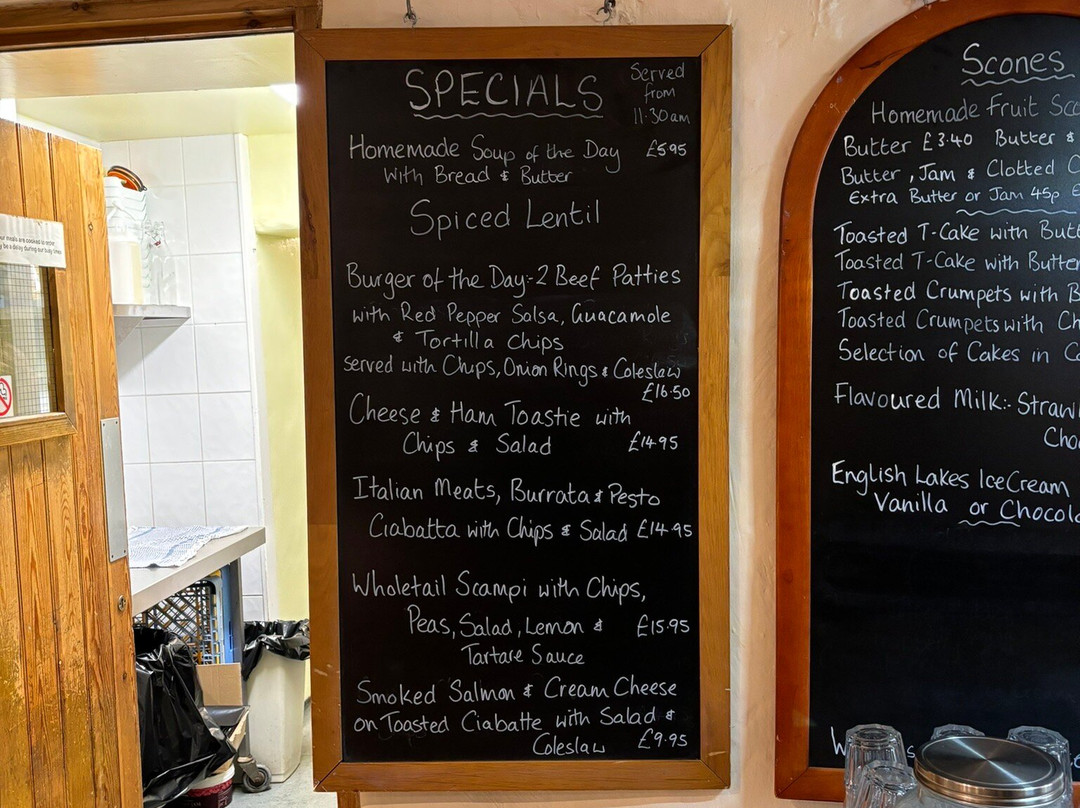 SPECIALS
Served
from
11.30am
Homemade Soup of the Day £5.95
with Bread & Butter
Spiced Lentil
Burger of the Day:-2 Beef Patties
with Red Pepper Salsa, Guacamole
& Tortilla Chips
served with Chips, Onion Rings & Coleslaw
£16.50
Cheese & Ham Toastie with
Chips & Salad £14.95
Italian Meats, Burrata & Pesto
Ciabatta with Chips & Salad £14.95
Wholetail Scampi with Chips,
Peas, Salad, Lemon & £15.95
Tartare Sauce
Smoked Salmon & Cream Cheese
on Toasted Ciabatte with Salad &
Coleslaw £9.95
Scones
Homemade Fruit Sco
Butter £3.40 Butter &
Butter, Jam & Clotted C
Extra Butter or Jam 45p
Toasted T-Cake with Butt
Toasted T-Cake with Butter
Toasted Crumpets with B
Toasted Crumpets with Ch
Selection of Cakes in C
Flavoured Milk:- Straw
Cho
English Lakes Ice Cream
Vanilla or Chocola